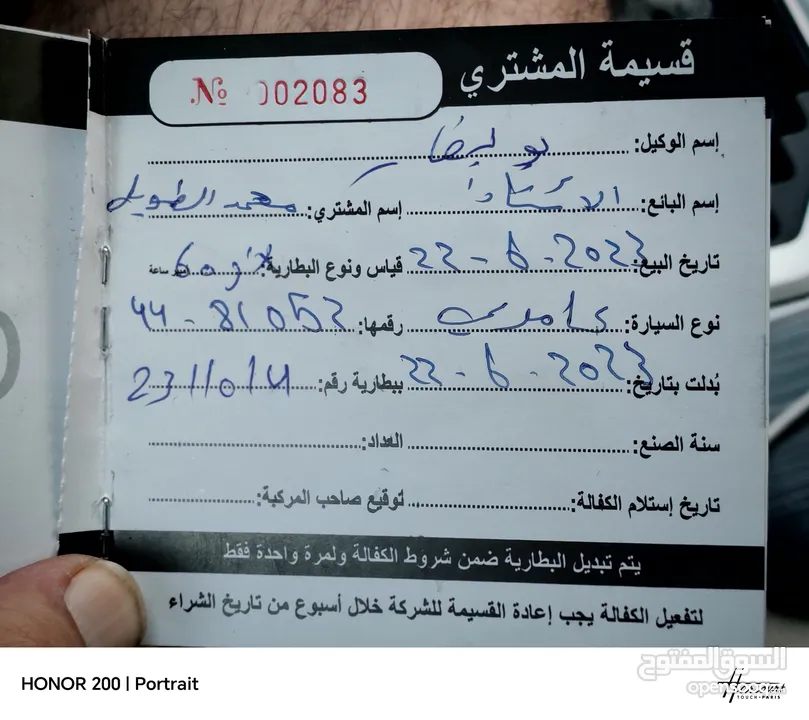 قسيمة المشتري
№ 002083
إسم الوكيل:
إسم البائع: إسم المشتري: محمد الطويل
تاريخ البيع: 22-6-2023 قياس ونوع البطارية: 60 أمبير ساعة
نوع السيارة: كامري رقمها: 44-81052
بُدلت بتاريخ: 22-6-2023 ببطارية رقم:
سنة الصنع: العداد:
تاريخ إستلام الكفالة: توقيع صاحب المركبة:
يتم تبديل البطارية ضمن شروط الكفالة ولمرة واحدة فقط
لتفعيل الكفالة يجب إعادة القسيمة للشركة خلال أسبوع من تاريخ الشراء
السوق المفتوح
opensooq.com
HONOR 200 | Portrait
Harcourt
TOUCH - PARIS